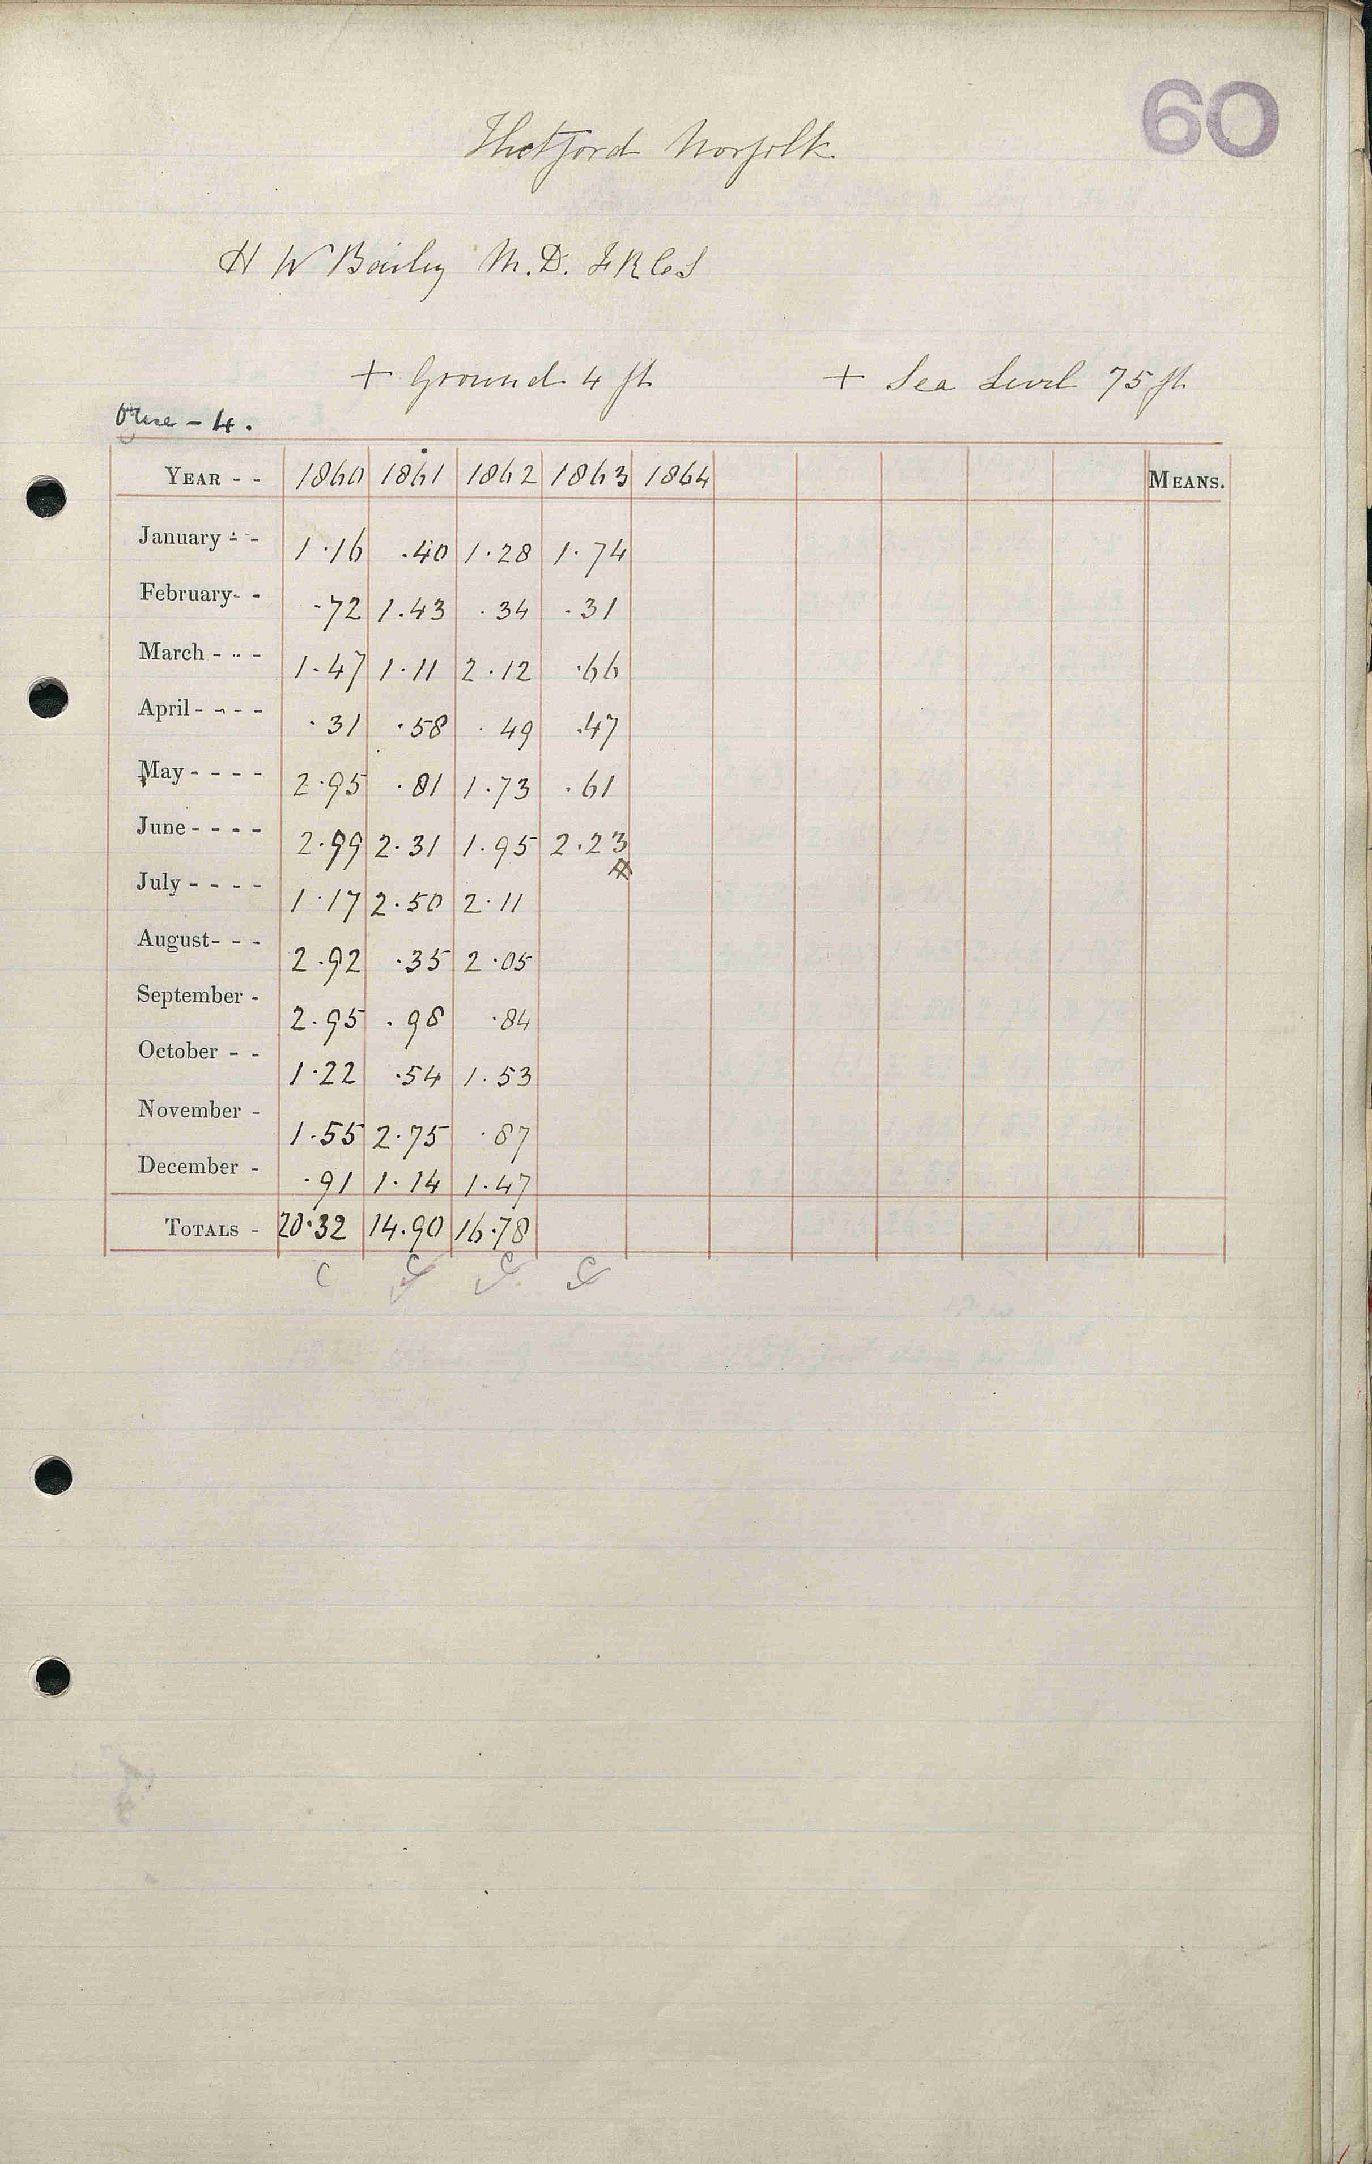 60
Thetford Norfolk
H W Bailey M.D. FRCS
+ Ground 4 ft + Sea Level 75 ft
Ouse - 4.
YEAR - - 1860 1861 1862 1863 1864 MEANS.
January - - 1.16 .40 1.28 1.74
February- - .72 1.43 .34 .31
March - - - 1.47 1.11 2.12 .66
April - - - - .31 .58 .49 .47
May - - - - 2.95 .81 1.73 .61
June - - - - 2.99 2.31 1.95 2.23
July - - - - 1.17 2.50 2.11
August- - - 2.92 .35 2.05
September - 2.95 .98 .84
October - - 1.22 .54 1.53
November - 1.55 2.75 .87
December - .91 1.14 1.47
TOTALS - 20.32 14.90 16.78
C C C C